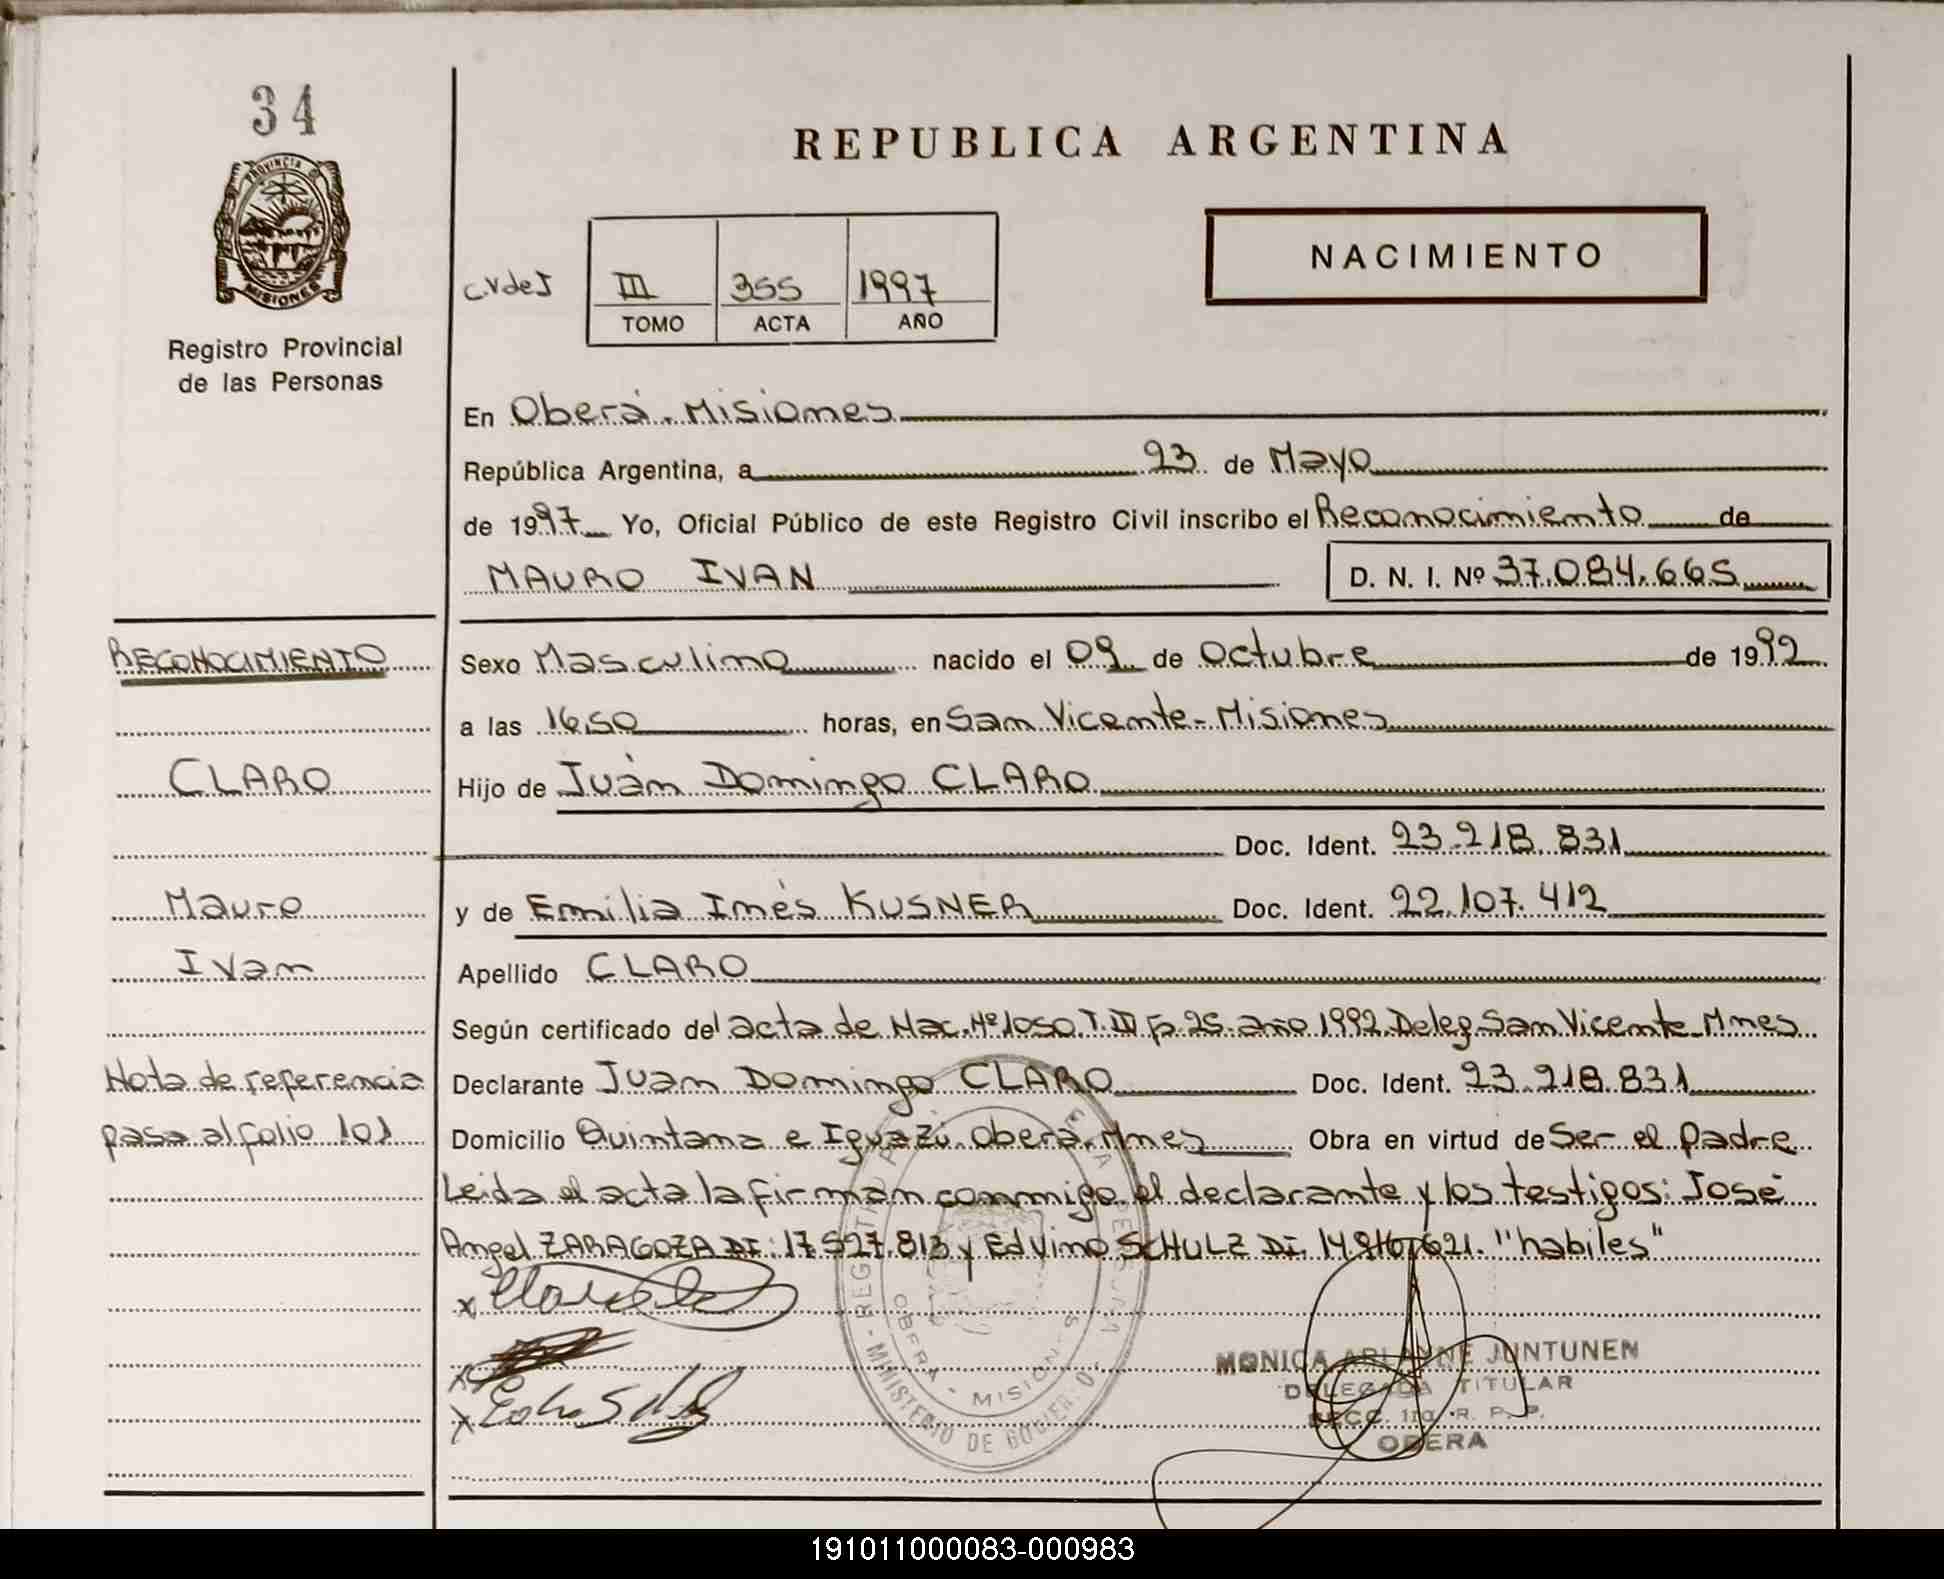 34
PROVINCIA D
MISIONES
Registro Provincial
de las Personas
REPUBLICA ARGENTINA
NACIMIENTO
C.V de J
III 355 1997
TOMO ACTA AÑO
En Oberá. Misiones
República Argentina, a 23 de Mayo
de 1997 Yo, Oficial Público de este Registro Civil inscribo el Reconocimiento de
MAURO IVAN D. N. I. Nº 37.084.665
RECONOCIMIENTO
CLARO
Mauro
Ivan
Nota de referencia
pasa al folio 101
Sexo Masculino nacido el 09 de Octubre de 1992
a las 16,50 horas, en San Vicente- Misiones
Hijo de Juan Domingo CLARO
Doc. Ident. 23.218.831
y de Emilia Inés KUSNER Doc. Ident. 22.107.412
Apellido CLARO
Según certificado del acta de Nac. Nº 1050 T. III Fº 25 año 1992 Deleg. San Vicente- Mnes
Declarante Juan Domingo CLARO Doc. Ident. 23.218.831
Domicilio Quintana e Iguazú. Oberá. Mnes Obra en virtud de Ser el Padre
Leida el acta la firman conmigo el declarante y los testigos: José
Angel ZARAGOZA DI: 17.527.813 y Edvino SCHULZ DI. "habiles"
MONICA JUNTUNEN
DELEGADA TITULAR
SECC. 1ra R. P. P.
OBERA
MINISTERIO DE GOBIERNO
OBERA - MISIONES
191011000083-000983